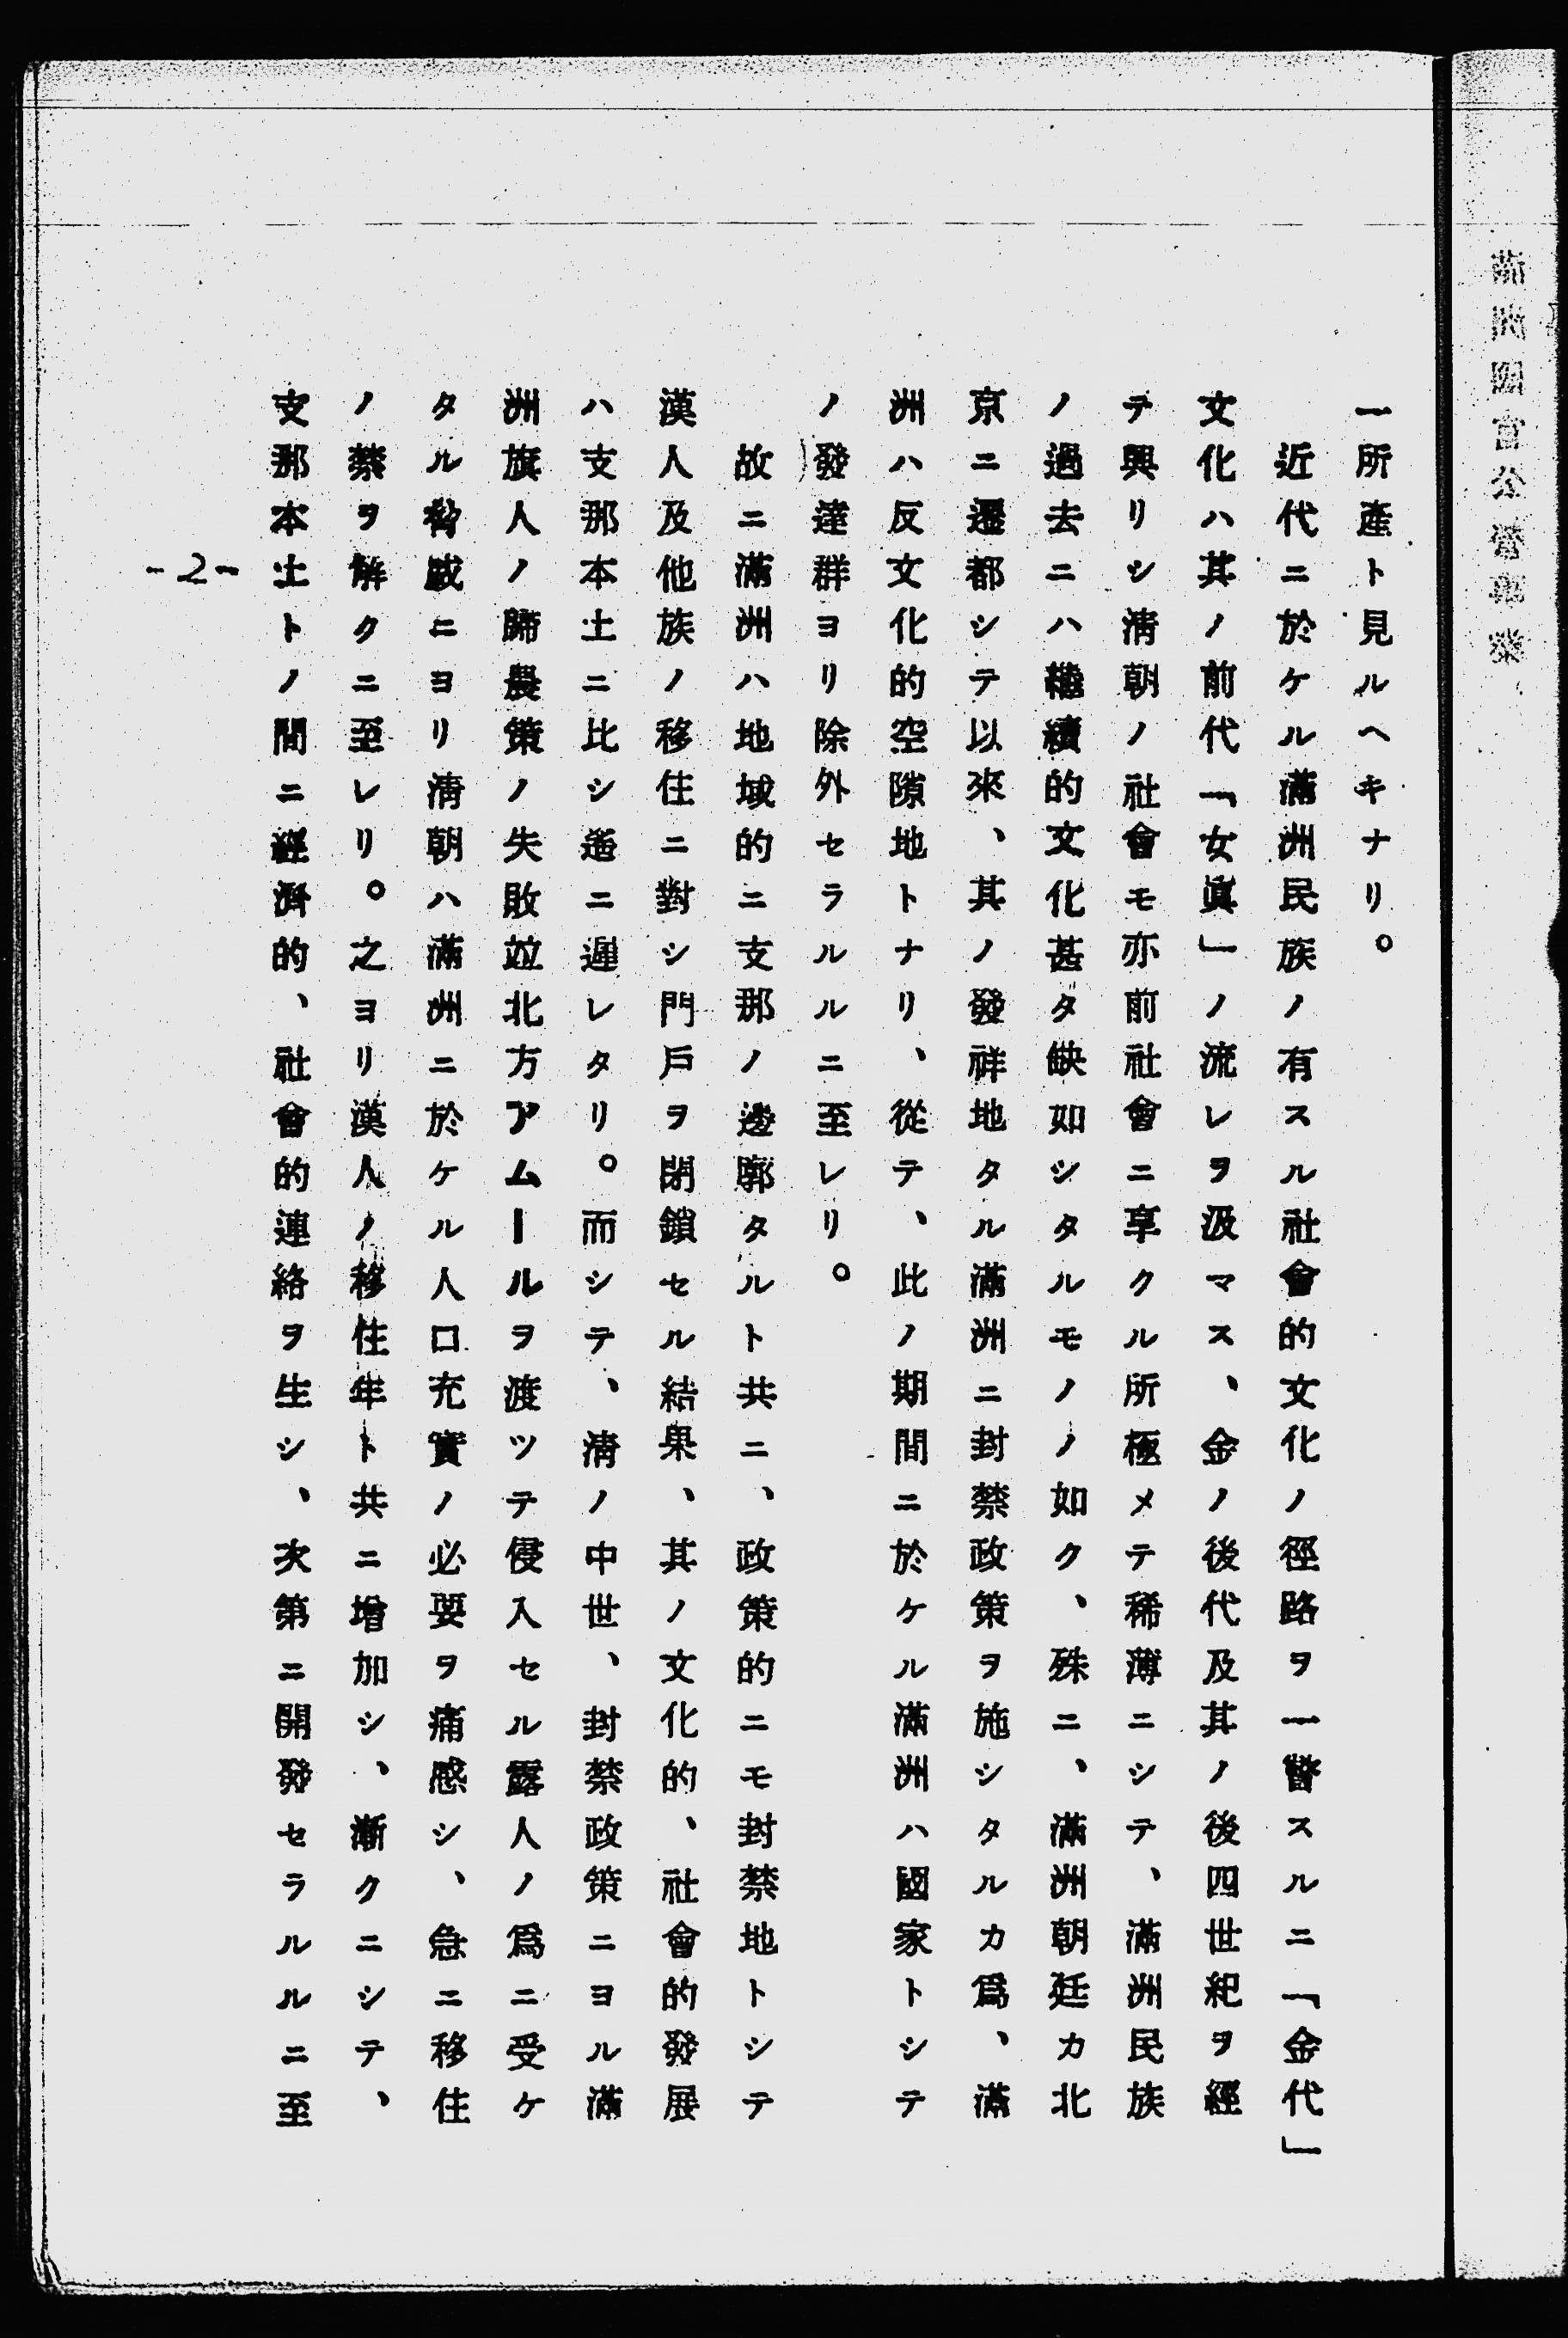 一所產ト見ルヘキナリ。
近代ニ於ケル滿洲民族ノ有スル社會的文化ノ徑路ヲ一瞥スルニ「金代」
文化ハ其ノ前代「女眞」ノ流レヲ汲マス、金ノ後代及其ノ後四世紀ヲ經
テ興リシ淸朝ノ社會モ亦前社會ニ享クル所極メテ稀薄ニシテ、滿洲民族
ノ過去ニハ繼續的文化甚タ缺如シタルモノノ如ク、殊ニ、滿洲朝廷カ北
京ニ遷都シテ以來、其ノ發祥地タル滿洲ニ封禁政策ヲ施シタルカ爲、滿
洲ハ反文化的空隙地トナリ、從テ、此ノ期間ニ於ケル滿洲ハ國家トシテ
ノ發達群ヨリ除外セラルルニ至レリ。
故ニ滿洲ハ地域的ニ支那ノ邊廓タルト共ニ、政策的ニモ封禁地トシテ
漢人及他族ノ移住ニ對シ門戶ヲ閉鎖セル結果、其ノ文化的、社會的發展
ハ支那本土ニ比シ遙ニ遲レタリ。而シテ、淸ノ中世、封禁政策ニヨル滿
洲旗人ノ歸農策ノ失敗竝北方アムールヲ渡ツテ侵入セル露人ノ爲ニ受ケ
タル脅威ニヨリ淸朝ハ滿洲ニ於ケル人口充實ノ必要ヲ痛感シ、急ニ移住
ノ禁ヲ解クニ至レリ。之ヨリ漢人ノ移住年ト共ニ增加シ、漸クニシテ、
支那本土トノ間ニ經濟的、社會的連絡ヲ生シ、次第ニ開發セラルルニ至
-2-